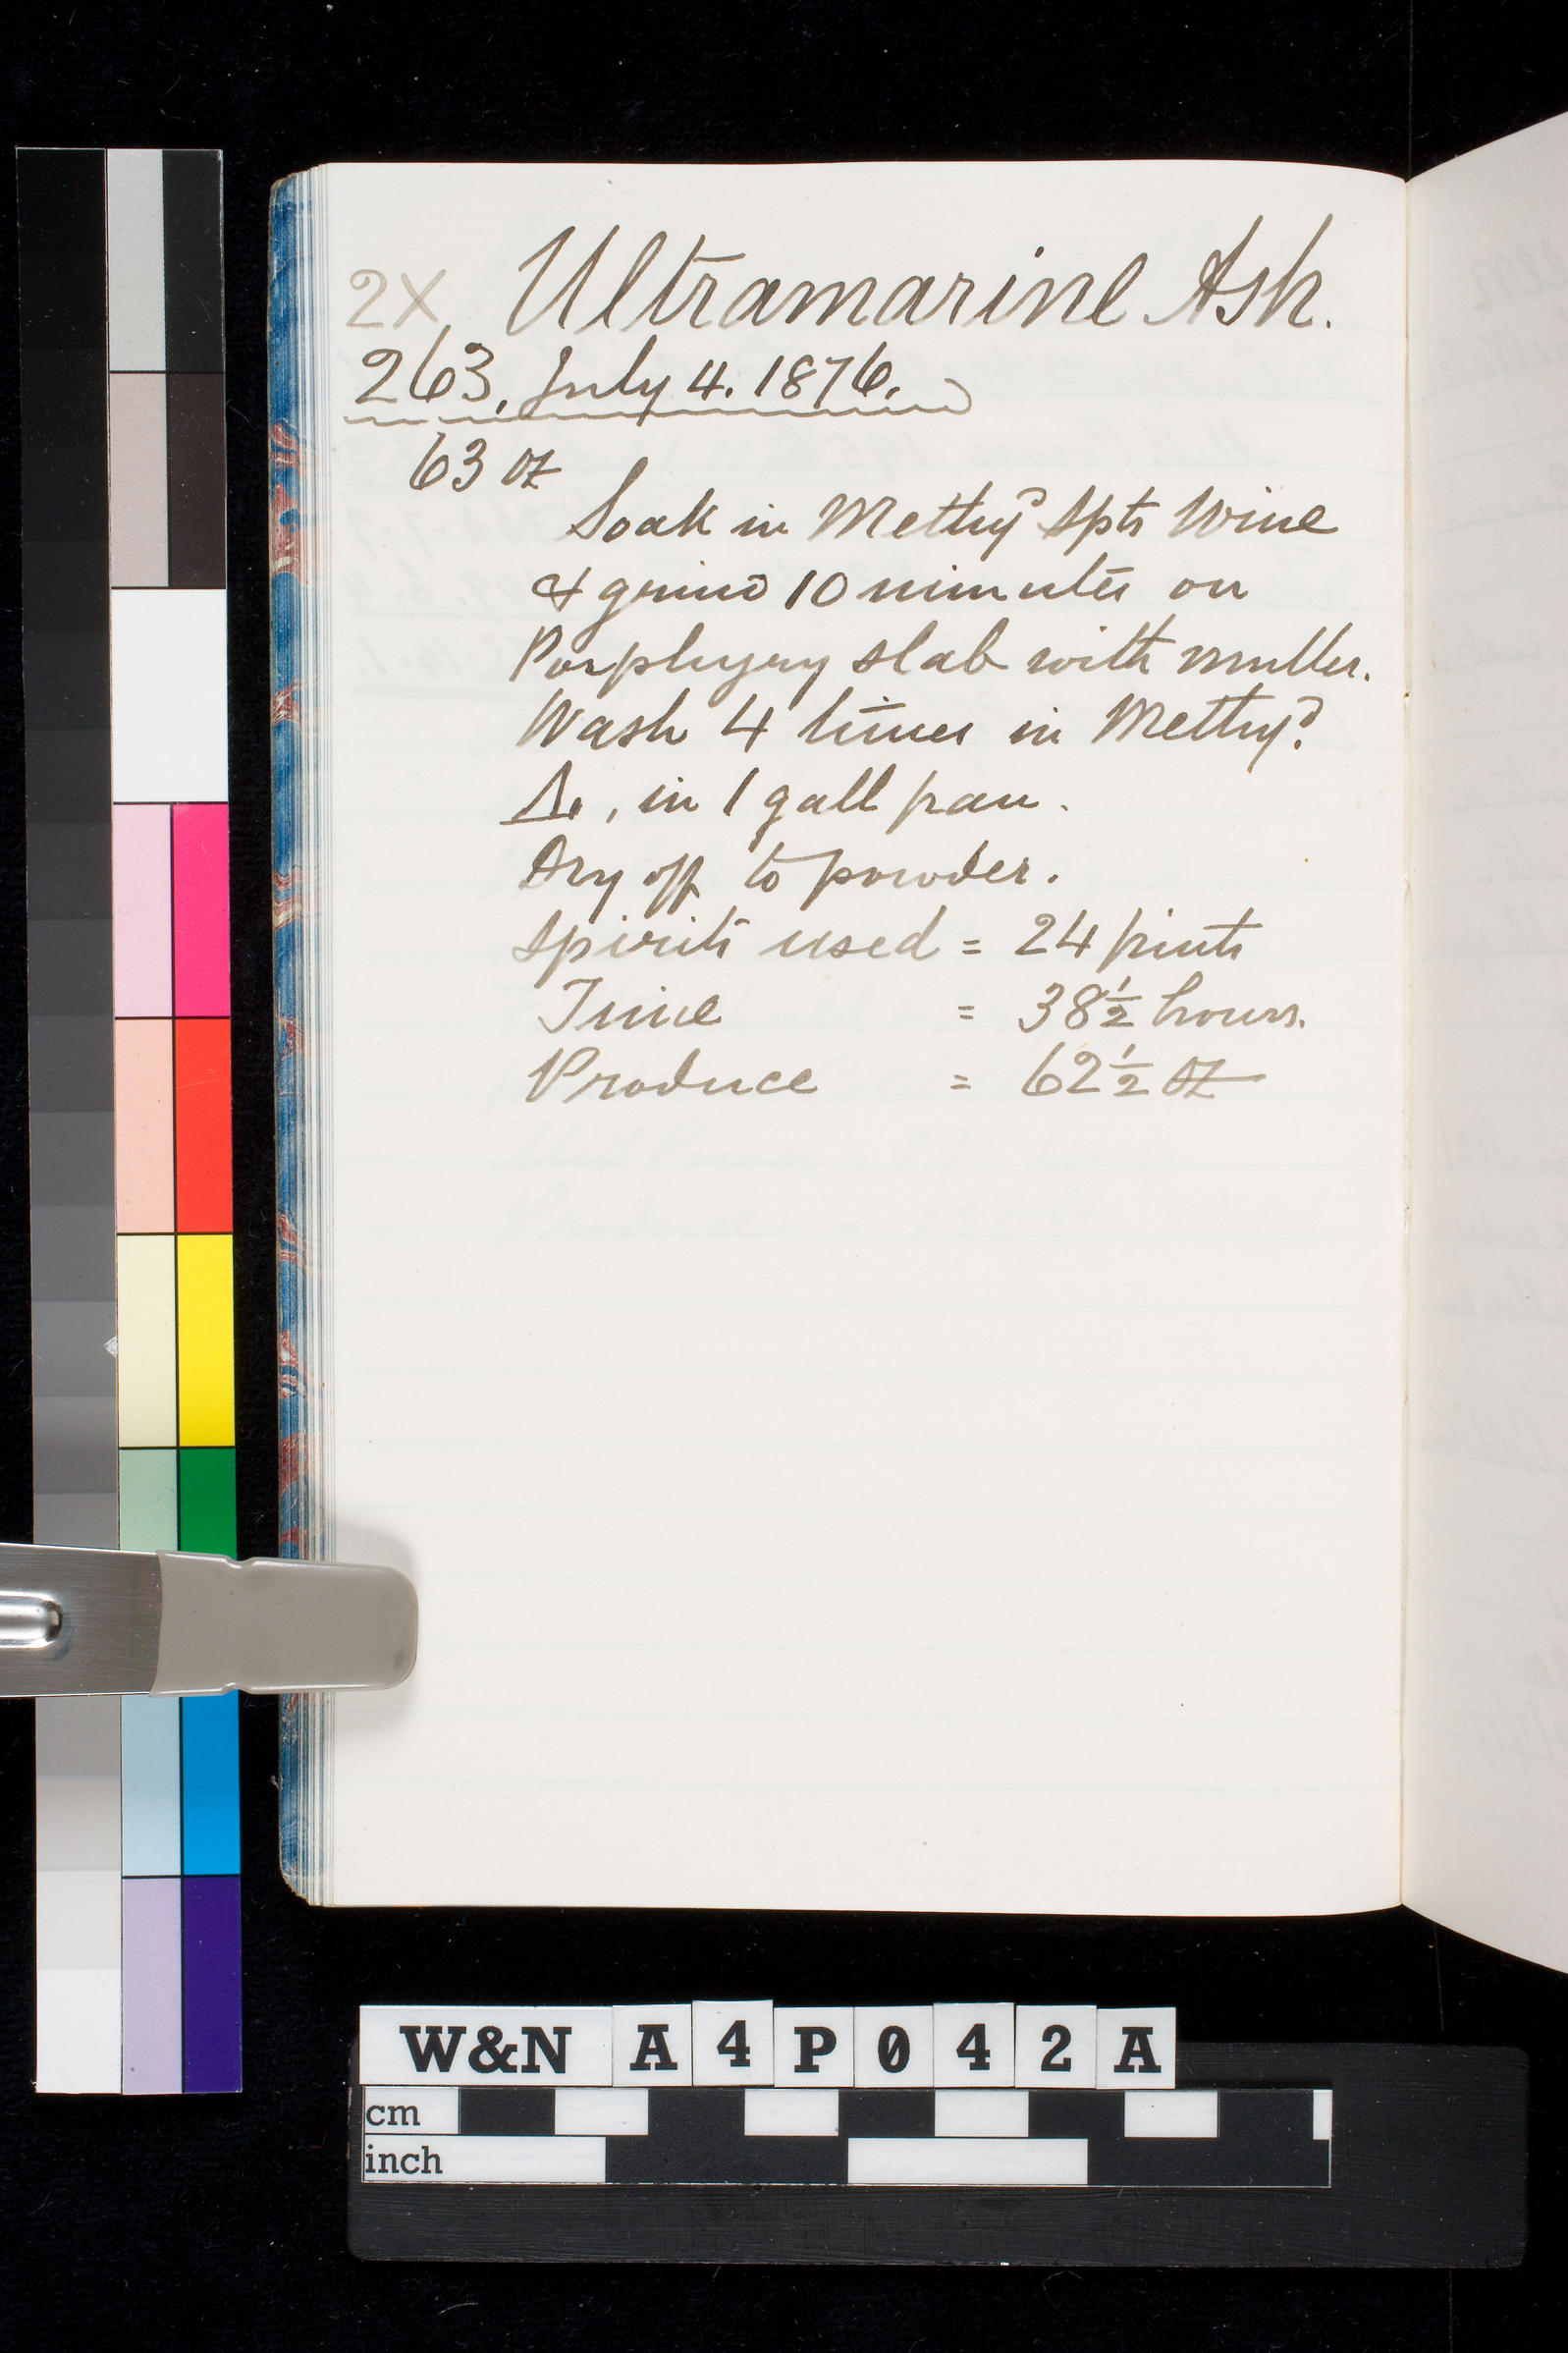 2X Ultramarine Ash.
263, July 4. 1876.
63 oz
Soak in Methyd Spts Wine
& grind 10 minutes on
Porphyry slab with muller.
Wash 4 times in Methyd
, in 1 gall pan.
Dry off to powder.
Spirits used = 24 pints
Time = 38 1/2 hours.
Produce = 62 1/2 oz
W&N A4P042A
cm
inch